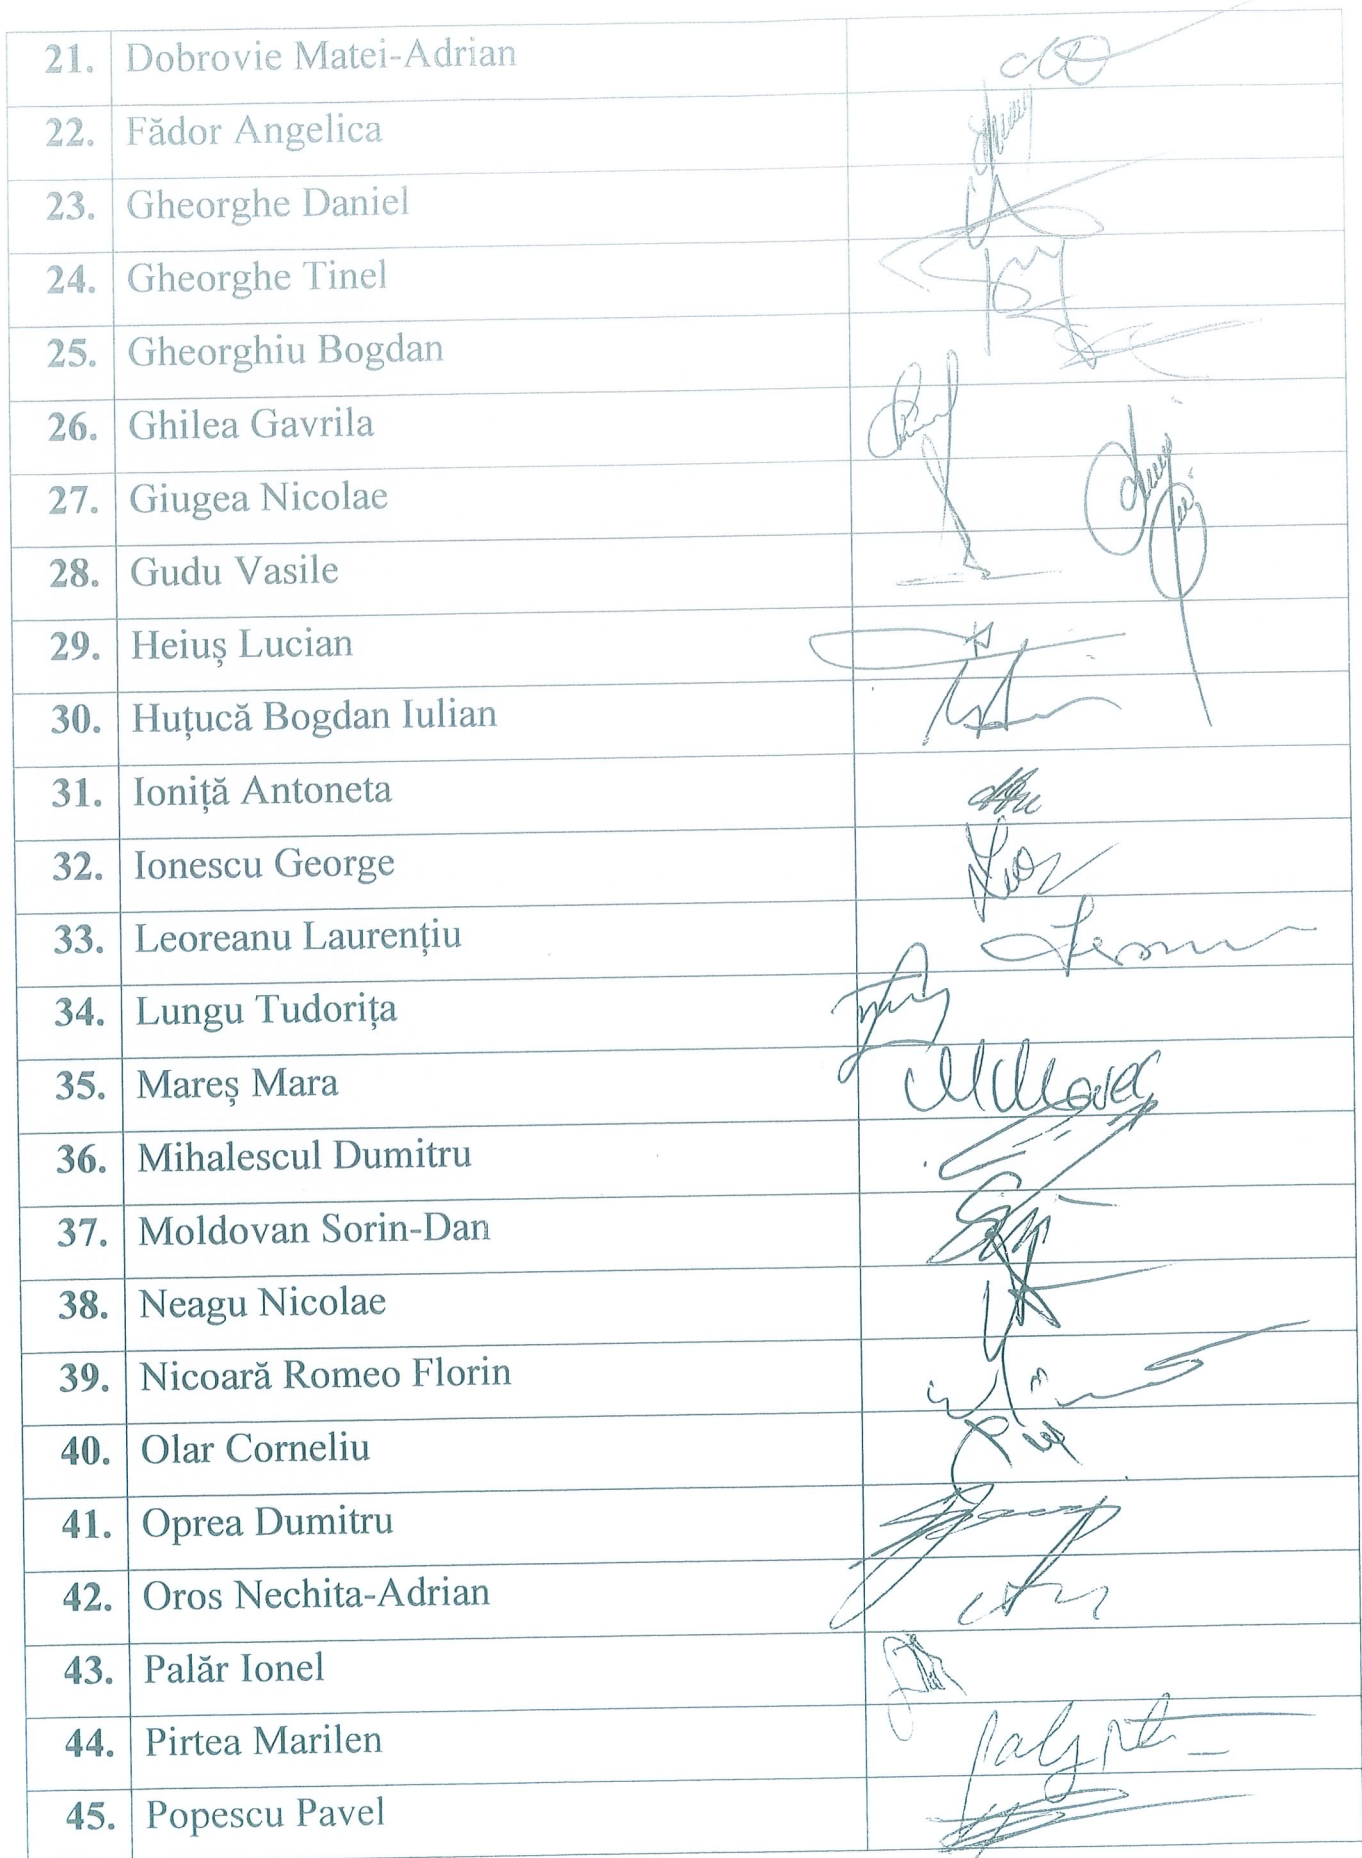 21. Dobrovie Matei-Adrian
22. Fădor Angelica
23. Gheorghe Daniel
24. Gheorghe Tinel
25. Gheorghiu Bogdan
26. Ghilea Gavrila
27. Giugea Nicolae
28. Gudu Vasile
29. Heiuș Lucian
30. Huțucă Bogdan Iulian
31. Ioniță Antoneta
32. Ionescu George
33. Leoreanu Laurențiu
34. Lungu Tudorița
35. Mareș Mara
36. Mihalescul Dumitru
37. Moldovan Sorin-Dan
38. Neagu Nicolae
39. Nicoară Romeo Florin
40. Olar Corneliu
41. Oprea Dumitru
42. Oros Nechita-Adrian
43. Palăr Ionel
44. Pirtea Marilen
45. Popescu Pavel